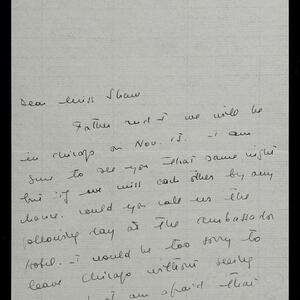 Dear Miss Shaw
Father and I we will be
in Chicago on Nov. 15. I am
sure to see you that same night
but if we miss each other by any
chance. Would you call us the
following day at the Ambassador
Hotel. I would be too sorry to
leave Chicago without seeing
but am afraid that